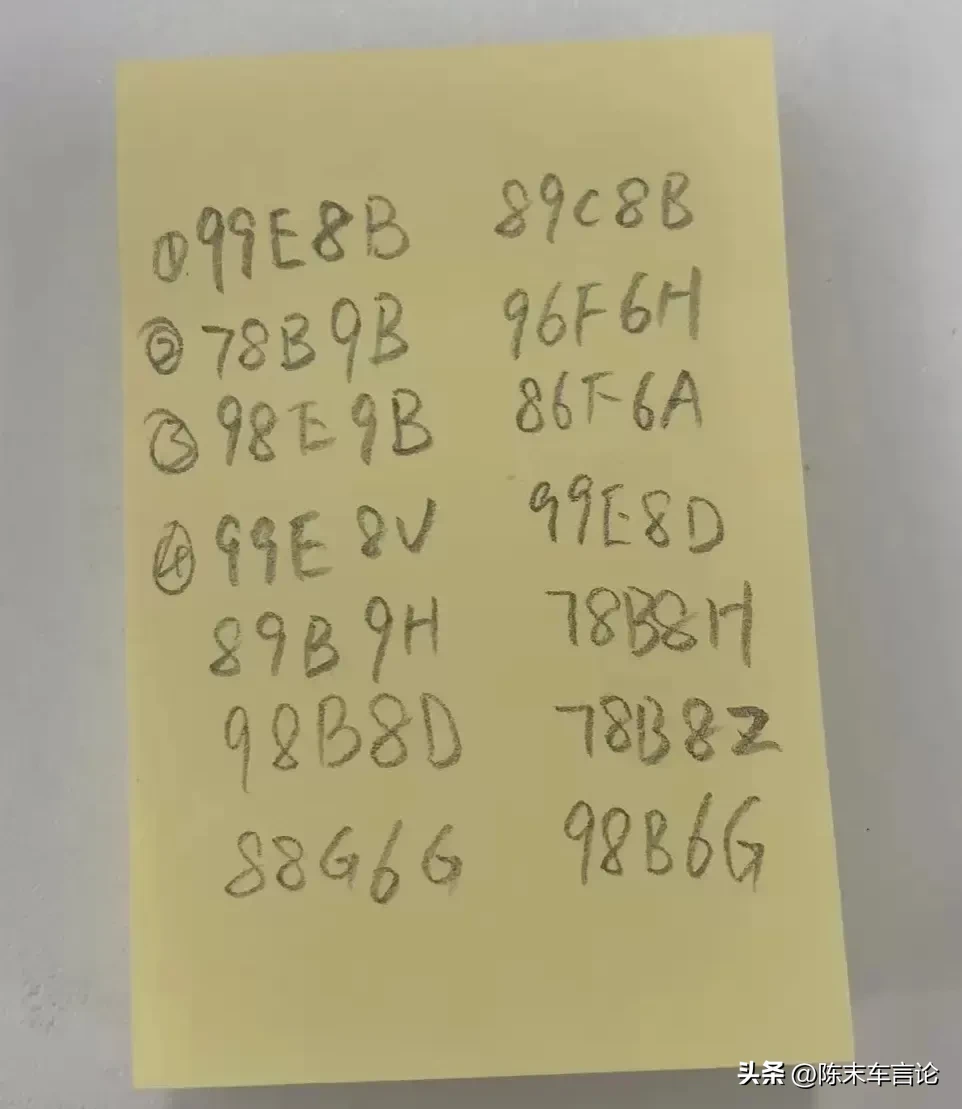 ①99E8B 89C8B
②78B9B 96F6H
③98E9B 86F6A
④99E8V 99E8D
89B9H 78B8H
98B8D 78B8Z
88G6G 98B6G
头条 @陈末车言论